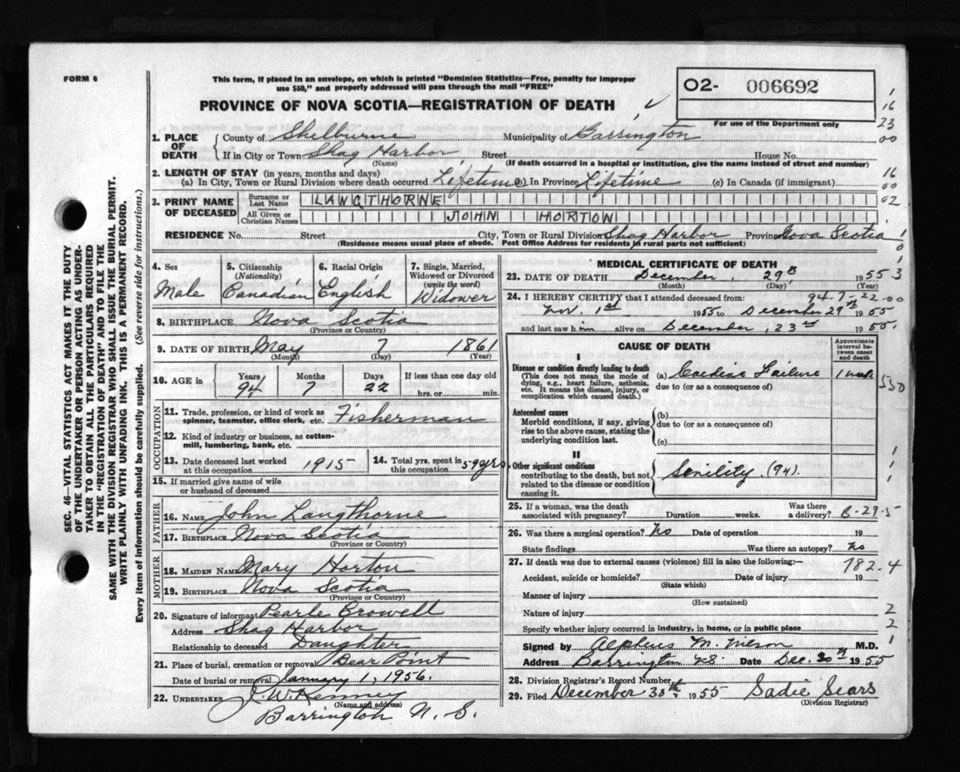 FORM 6
This form, if placed in an envelope, on which is printed "Dominion Statistics—Free, penalty for improper
use $50," and properly addressed will pass through the mail "FREE"
PROVINCE OF NOVA SCOTIA—REGISTRATION OF DEATH
02- 006692
For use of the Department only
1. PLACE OF DEATH { County of Shelburne Municipality of Barrington
If in City or Town Shag Harbor Street House No.
(Name) (If death occurred in a hospital or institution, give the name instead of street and number)
2. LENGTH OF STAY (in years, months and days)
(a) In City, Town or Rural Division where death occurred Lifetime (b) In Province Lifetime (c) In Canada (if immigrant)
3. PRINT NAME OF DECEASED Surname or Last Name LANGTHORNE
All Given or Christian Names JOHN HORTON
RESIDENCE No. Street City, Town or Rural Division Shag Harbor Province Nova Scotia
(Residence means usual place of abode. Post Office Address for residents in rural parts not sufficient)
4. Sex Male
5. Citizenship (Nationality) Canadian
6. Racial Origin English
7. Single, Married, Widowed or Divorced (write the word) Widower
8. BIRTHPLACE Nova Scotia
(Province or Country)
9. DATE OF BIRTH May 7 1861
(Month) (Day) (Year)
10. AGE in Years 94 Months 7 Days 22 If less than one day old hrs. or min.
OCCUPATION
11. Trade, profession, or kind of work as spinner, teamster, office clerk, etc. Fisherman
12. Kind of industry or business, as cotton-mill, lumbering, bank, etc.
13. Date deceased last worked at this occupation 1915
14. Total yrs. spent in this occupation 59 yrs
15. If married give name of wife or husband of deceased
FATHER
16. NAME John Langthorne
17. BIRTHPLACE Nova Scotia
(Province or Country)
MOTHER
18. MAIDEN NAME Mary Horton
19. BIRTHPLACE Nova Scotia
(Province or Country)
20. Signature of informant Pearle Crowell
Address Shag Harbor
Relationship to deceased Daughter
21. Place of burial, cremation or removal Bear Point
Date of burial or removal January 1, 1956.
22. UNDERTAKER J. W. Kenney
(Name and address)
Barrington N. S.
MEDICAL CERTIFICATE OF DEATH
23. DATE OF DEATH December 29th 1955
(Month) (Day) (Year)
94-7-22
24. I HEREBY CERTIFY that I attended deceased from:
1st 1955 to December 29th 1955
and last saw him alive on December, 23rd 1955.
CAUSE OF DEATH
Approximate interval between onset and death
I
Disease or condition directly leading to death
(This does not mean the mode of dying, e.g., heart failure, asthenia, etc. It means the disease, injury, or complication which caused death.)
(a) Cardiac Failure 1 week
due to (or as a consequence of)
Antecedent causes
Morbid conditions, if any, giving rise to the above cause, stating the underlying condition last.
(b)
due to (or as a consequence of)
(c)
II
Other significant conditions
contributing to the death, but not related to the disease or condition causing it.
Senility (94)
25. If a woman, was the death associated with pregnancy? Duration weeks. Was there a delivery?
26. Was there a surgical operation? No Date of operation 19
State findings Was there an autopsy? No
27. If death was due to external causes (violence) fill in also the following:— 782.4
Accident, suicide or homicide? Date of injury 19
(State which)
Manner of injury
(How sustained)
Nature of injury
Specify whether injury occurred in industry, in home, or in public place
Signed by Alpheus M. Wilson M.D.
Address Barrington N.S. Date Dec. 30th 1955
28. Division Registrar's Record Number
29. Filed December 30th 1955 Sadie Sears
(Division Registrar)
SEC. 46—VITAL STATISTICS ACT MAKES IT THE DUTY
OF THE UNDERTAKER OR PERSON ACTING AS UNDER-
TAKER TO OBTAIN ALL THE PARTICULARS REQUIRED
IN THE "REGISTRATION OF DEATH" AND TO FILE THE
SAME WITH THE DIVISION REGISTRAR WHO SHALL ISSUE THE BURIAL PERMIT.
WRITE PLAINLY WITH UNFADING INK. THIS IS A PERMANENT RECORD.
Every item of information should be carefully supplied. (See reverse side for instructions.)